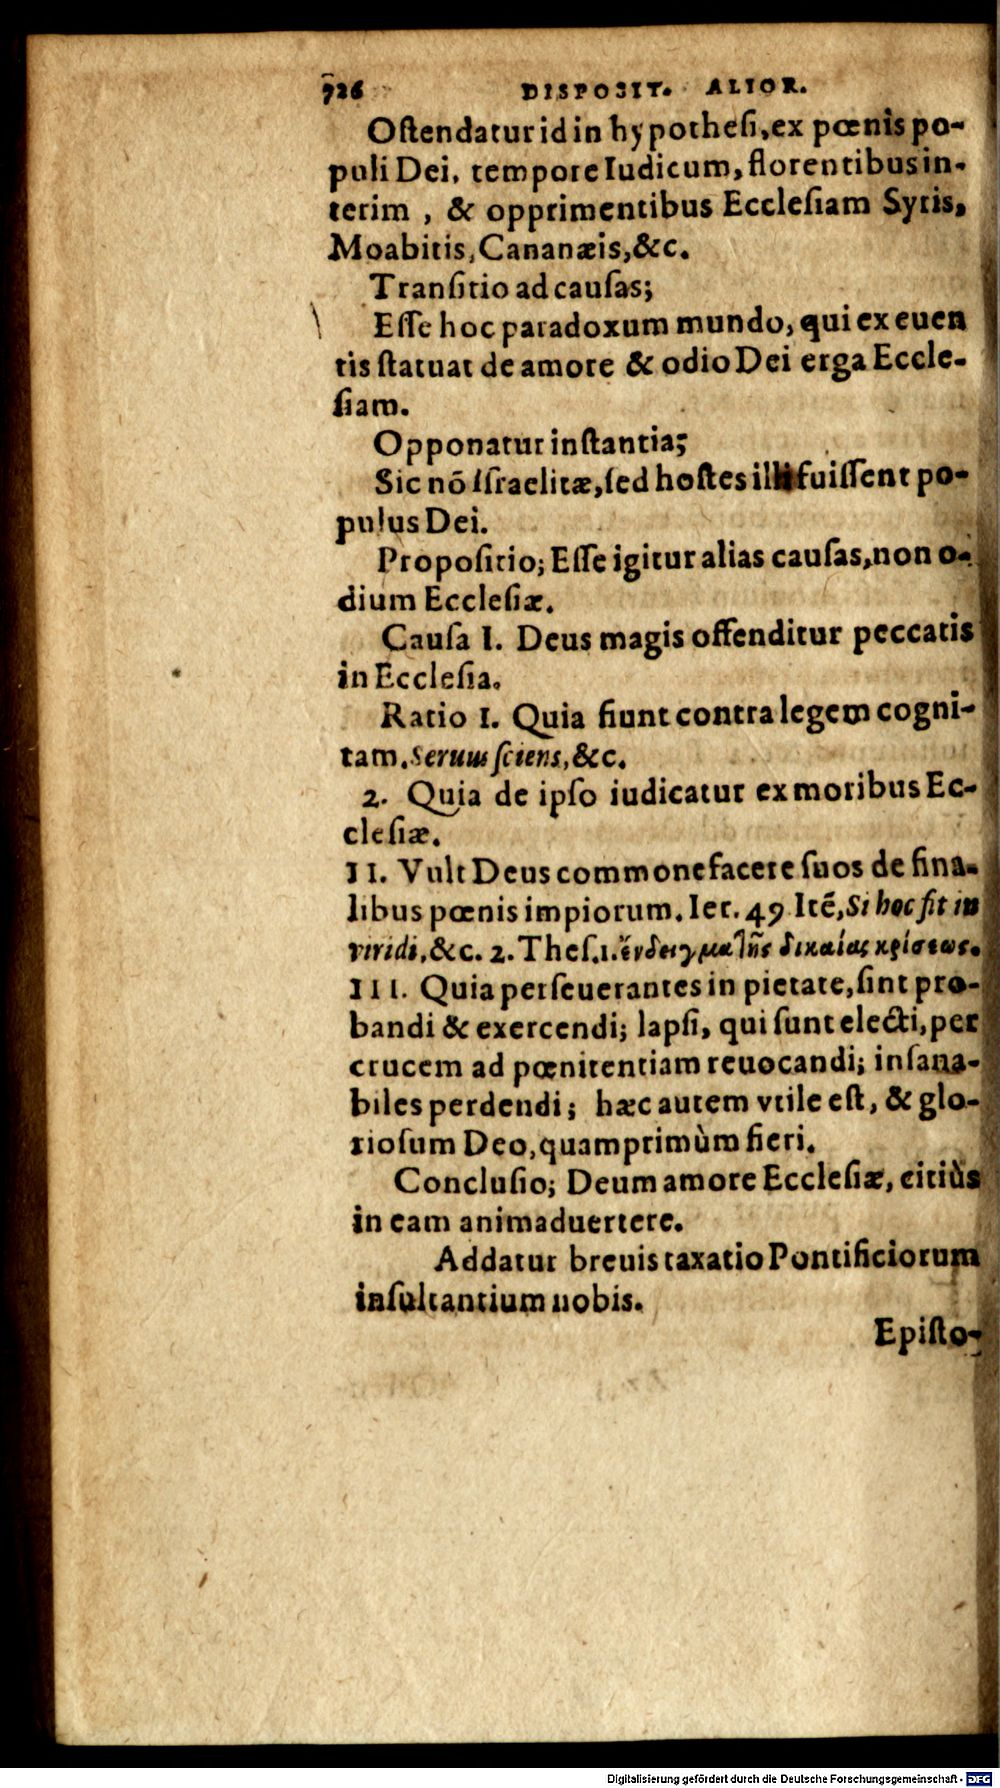 726 DISPOSIT. ALIOR.
Oſtendatur id in hypotheſi, ex pœnis po-
puli Dei, tempore Iudicum, florentibus in-
terim, & opprimentibus Eccleſiam Syris,
Moabitis, Cananæis, &c.
Tranſitio ad cauſas;
Eſſe hoc paradoxum mundo, qui ex euen
tis ſtatuat de amore & odio Dei erga Eccle-
ſiam.
Opponatur inſtantia;
Sic nõ Iſraelitæ, ſed hoſtes illi fuiſſent po-
pulus Dei.
Propoſitio; Eſſe igitur alias cauſas, non o-
dium Eccleſiæ.
Cauſa I. Deus magis offenditur peccatis
in Eccleſia.
Ratio 1. Quia fiunt contra legem cogni-
tam. Seruus ſciens, &c.
2. Quia de ipſo iudicatur ex moribus Ec-
cleſiæ.
II. Vult Deus commonefacere ſuos de fina-
libus pœnis impiorum. Ier. 49 Itẽ, Si hoc fit in
viridi, &c. 2. Theſ. 1. ἔνδειγμα τῆς δικαίας κρίσεως.
III. Quia perſeuerantes in pietate, ſint pro-
bandi & exercendi; lapſi, qui ſunt electi, per
crucem ad pœnitentiam reuocandi; inſana-
biles perdendi; hæc autem vtile eſt, & glo-
rioſum Deo, quamprimùm fieri.
Concluſio; Deum amore Eccleſiæ, citiùs
in eam animaduertere.
Addatur breuis taxatio Pontificiorum
inſultantium nobis.
Epiſto-
Digitalisierung gefördert durch die Deutsche Forschungsgemeinschaft - DFG